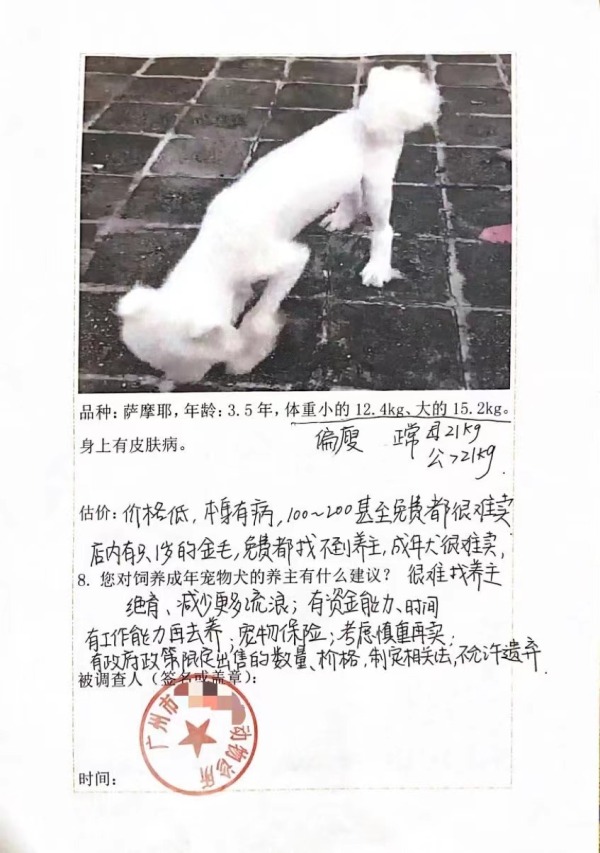 品种：萨摩耶，年龄：3.5年，体重小的12.4kg、大的15.2kg。
偏瘦 正常 母21kg
身上有皮肤病。
公>21kg
估价：价格低，本身有病，100~200甚至免费都很难卖
店内有只1岁的金毛，免费都找不到养主，成年犬很难卖，
8. 您对饲养成年宠物犬的养主有什么建议？ 很难找养主
绝育、减少更多流浪；有资金能力、时间
有工作能力再去养；宠物保险；考虑慎重再卖；
有政府政策限定出售的数量、价格，制定相关法，不允许遗弃.
被调查人（签名或盖章）：
广州市 动物诊所
时间：